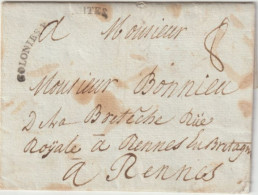 COLONIES
a Monsieur 8
Monsieur Bonnieu
Bretèche Rüe
Royale à Rennes En Bretagne
a Rennes